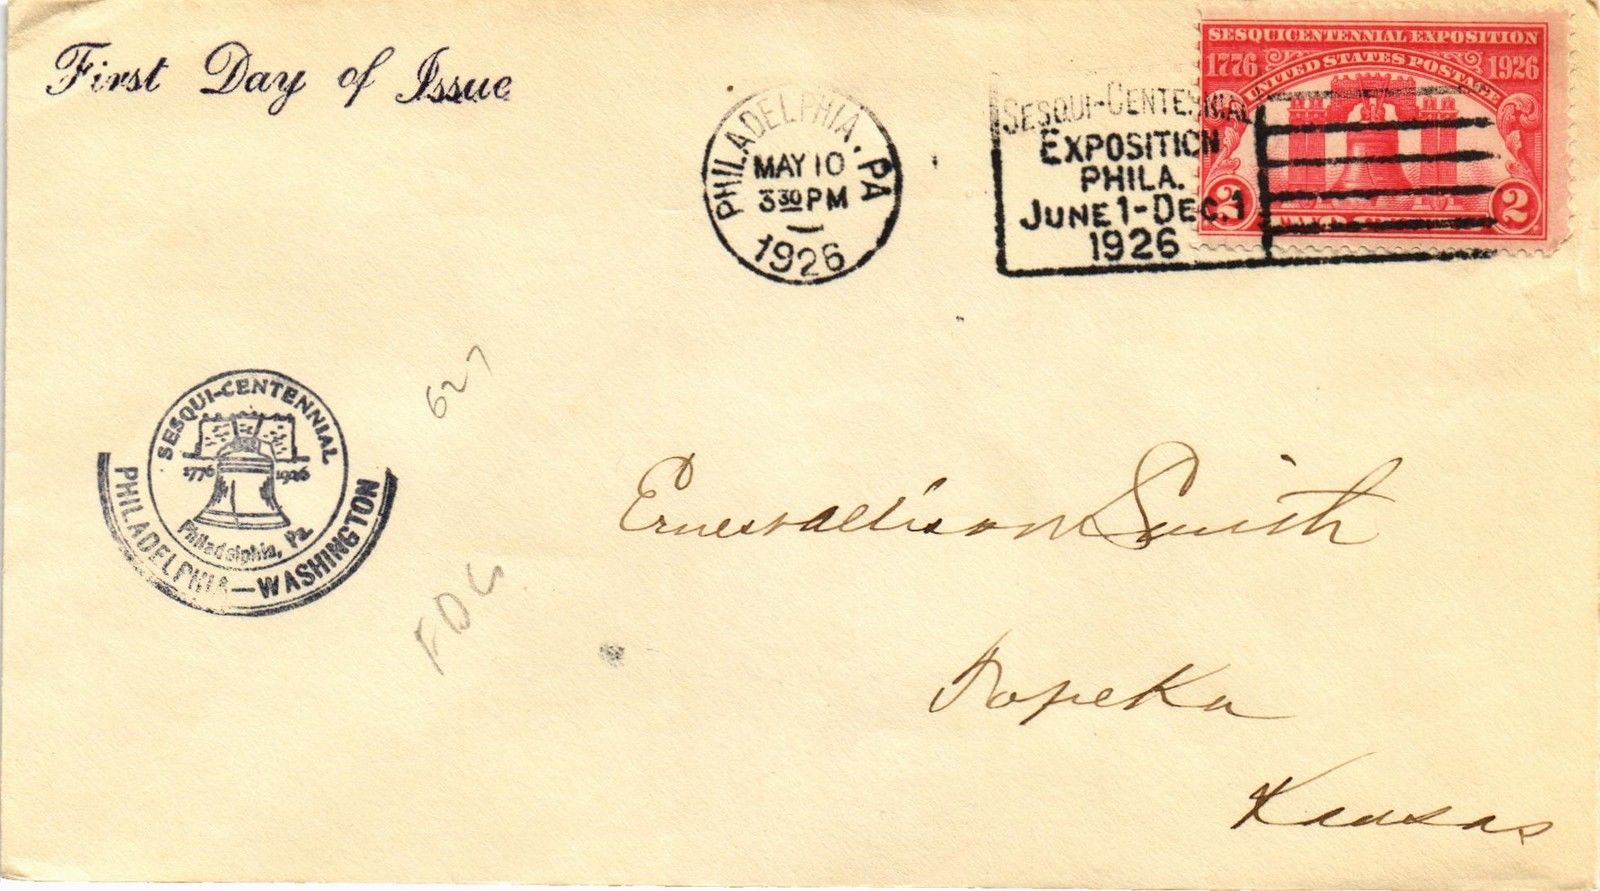 First Day of Issue
SESQUICENTENNIAL EXPOSITION
1776 UNITED STATES POSTAGE 1926
2 2
PHILADELPHIA, PA
MAY 10
3 30 PM
1926
SESQUI-CENTENNIAL
EXPOSITION
PHILA.
JUNE 1-DEC. 1
1926
SESQUI-CENTENNIAL
1776 1926
Philadelphia, Pa.
PHILADELPHIA—WASHINGTON
627
Ernest Allison Smith
Topeka
Kansas